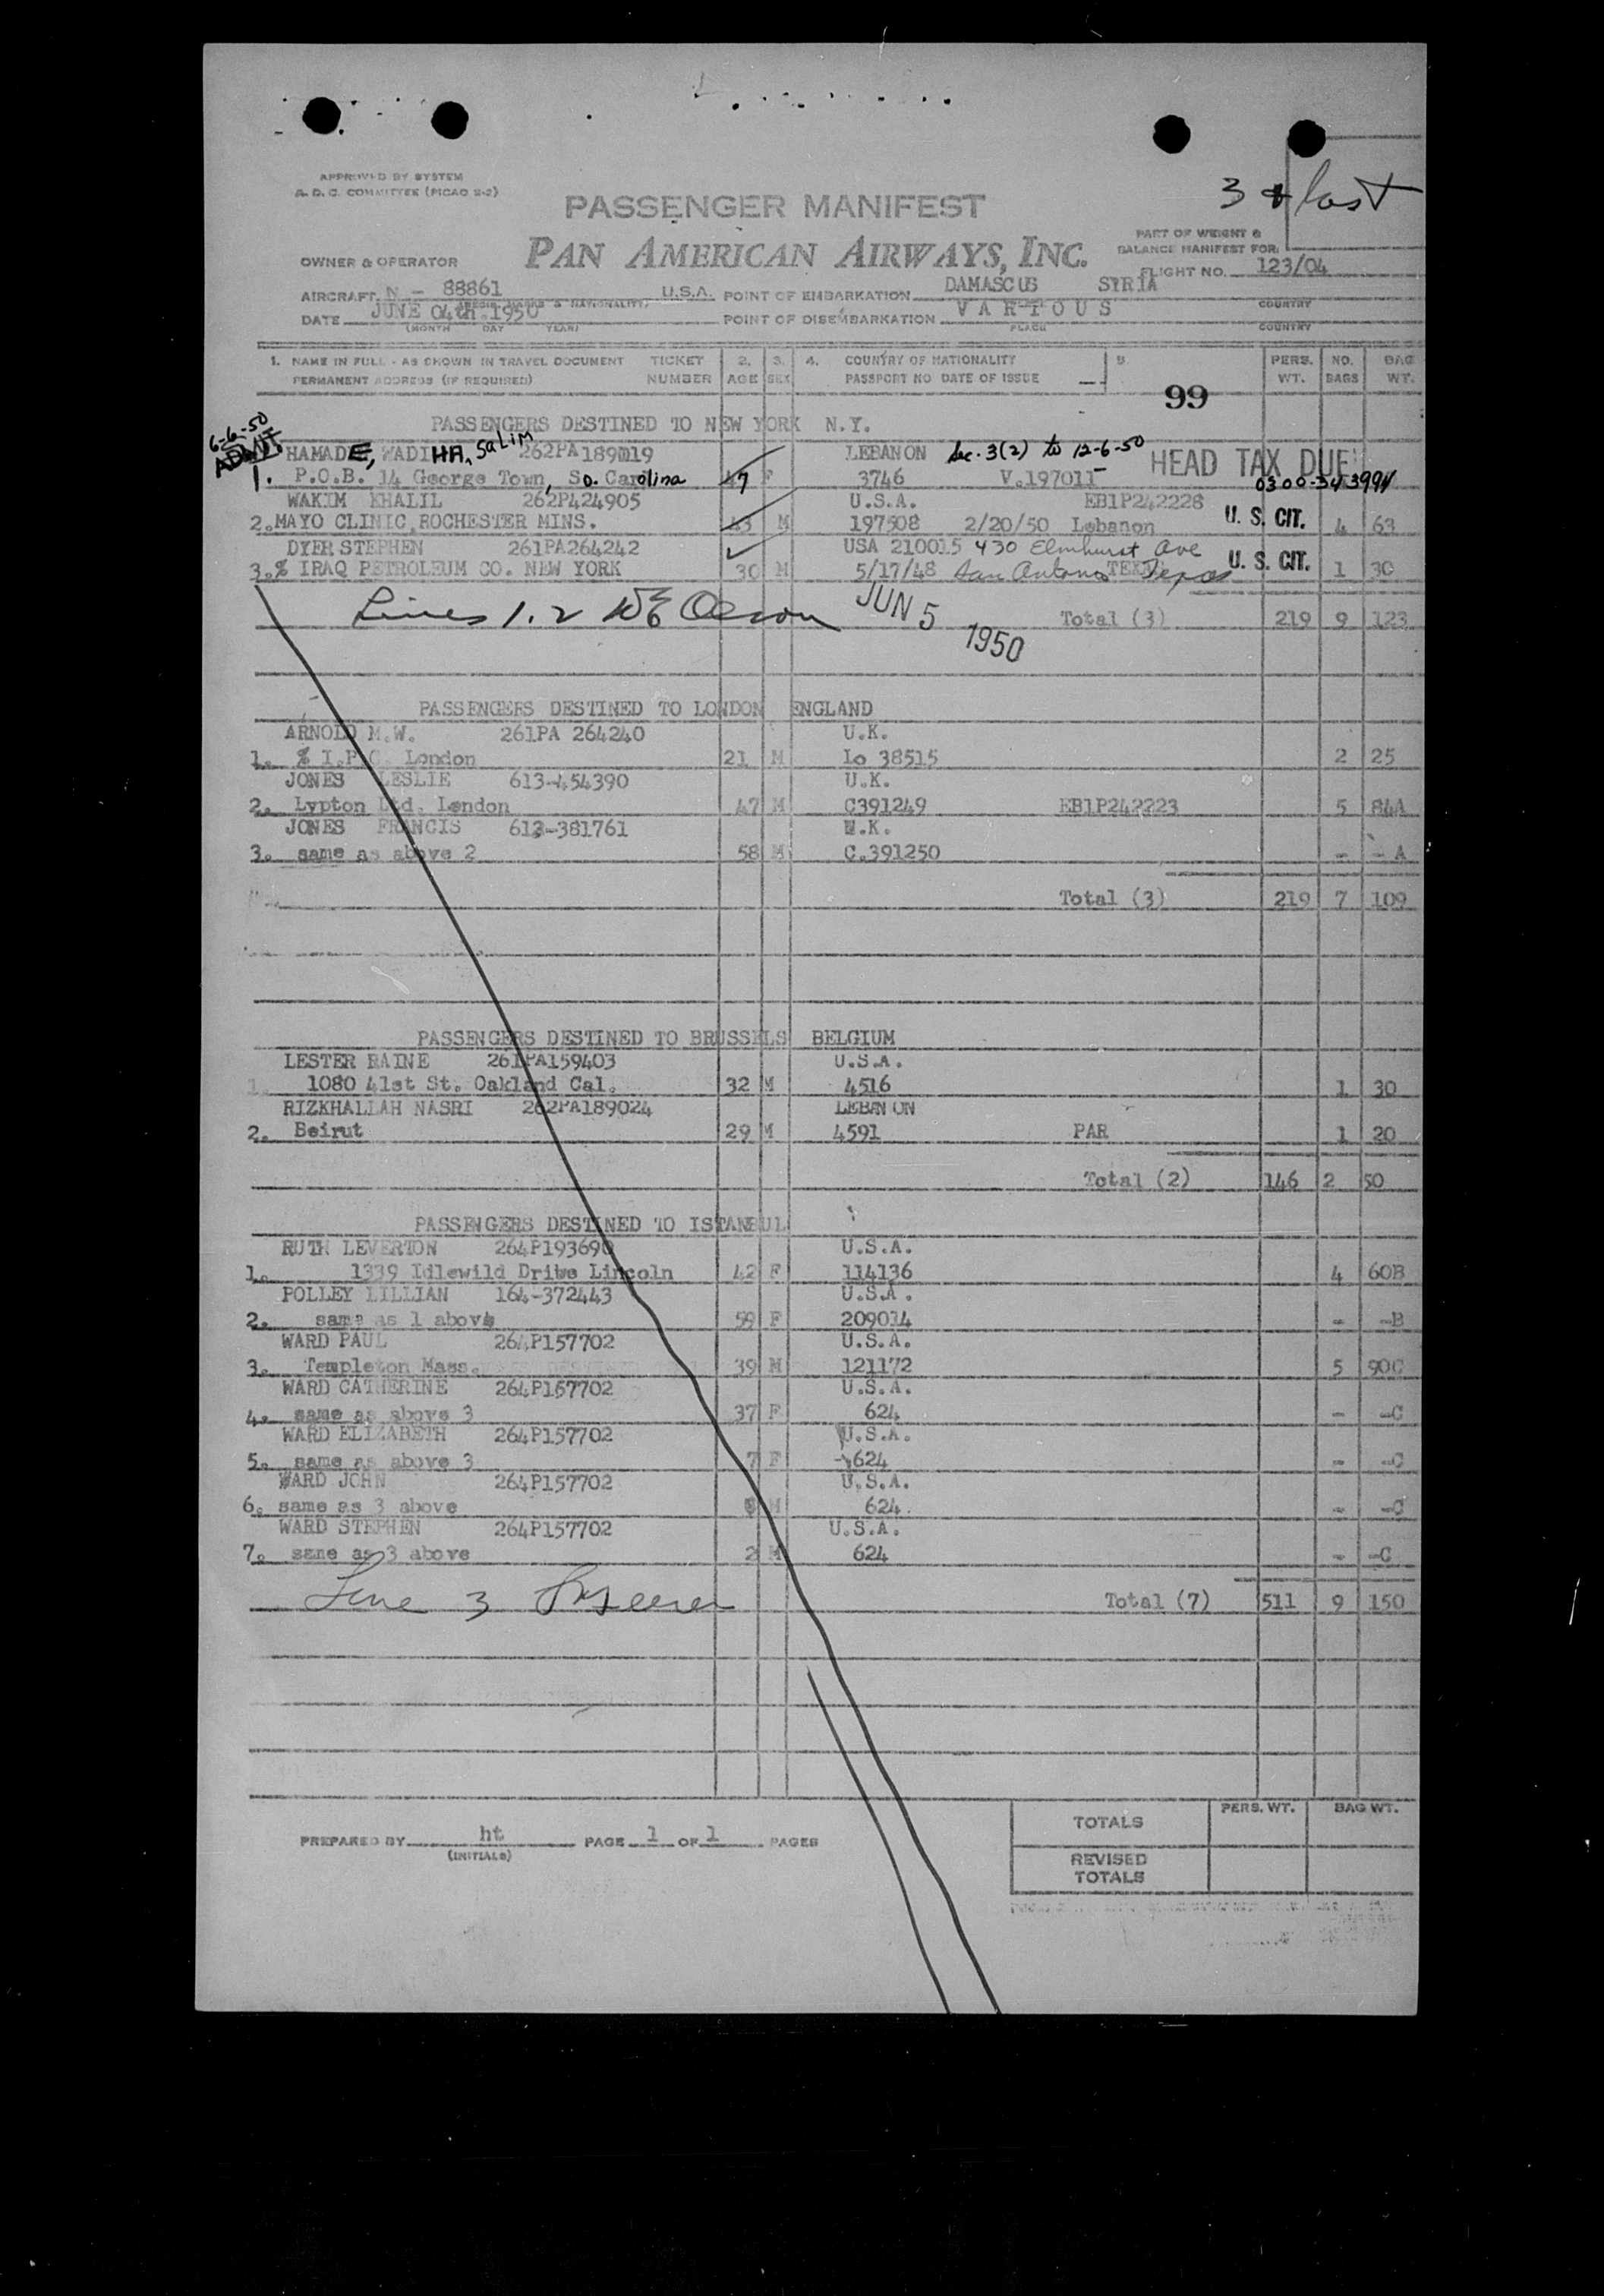 3 & last
APPROVED BY SYSTEM
A. D. C. COMMITTEE (PICAO S-2)
PASSENGER MANIFEST
PAN AMERICAN AIRWAYS, INC.
PART OF WEIGHT &
BALANCE MANIFEST FOR:
OWNER & OPERATOR
FLIGHT NO. 123/04
AIRCRAFT N - 88861 U.S.A. POINT OF EMBARKATION DAMASCUS SYRIA
MARKS & NATIONALITY COUNTRY
DATE JUNE 04th.1950 POINT OF DISEMBARKATION VARIOUS
(MONTH DAY YEAR) PLACE COUNTRY
1. NAME IN FULL - AS SHOWN IN TRAVEL DOCUMENT TICKET 2. 3. 4. COUNTRY OF NATIONALITY 5. PERS. NO. BAG
PERMANENT ADDRESS (IF REQUIRED) NUMBER AGE SEX PASSPORT NO DATE OF ISSUE WT. BAGS WT.
99
PASSENGERS DESTINED TO NEW YORK N.Y.
6-6-50
HAMADE, WADIHA, Salim 262PA189019 LEBANON Sec. 3(2) to 12-6-50 HEAD TAX DUE
1. P.O.B. 14 George Town, So. Carolina 47 F 3746 V.197011
WAKIM KHALIL 262P424905 U.S.A. EB1P242228
2. MAYO CLINIC, ROCHESTER MINS. 43 M 197508 2/20/50 Lebanon U. S. CIT. 4 63
DYER STEPHEN 261PA264242 USA 210015 430 Elmhurst Ave
3. % IRAQ PETROLEUM CO. NEW YORK 30 M 5/17/48 San Antonio Texas U. S. CIT. 1 30
Lines 1. 2 JUN 5 1950 Total (3) 219 9 123
PASSENGERS DESTINED TO LONDON ENGLAND
ARNOLD M.W. 261PA 264240 U.K.
1. % I.P.C. London 21 M Lo 38515 2 25
JONES LESLIE 613-454390 U.K.
2. Lypton Ltd. London 47 M C391249 EB1P242223 5 84A
JONES FRANCIS 613-381761 U.K.
3. same as above 2 58 M C.391250 - - A
Total (3) 219 7 109
PASSENGERS DESTINED TO BRUSSELS BELGIUM
LESTER RAINE 261PA159403 U.S.A.
1. 1080 41st St. Oakland Cal. 32 M 4516 1 30
RIZKHALLAH NASRI 262PA189024 LEBANON
2. Beirut 29 M 4591 PAR 1 20
Total (2) 146 2 50
PASSENGERS DESTINED TO ISTANBUL
RUTH LEVERTON 264P193690 U.S.A.
1. 1339 Idlewild Dribe Lincoln 42 F 114136 4 60B
POLLEY LILLIAN 164-372443 U.S.A.
2. same as 1 above 59 F 209014 - -B
WARD PAUL 264P157702 U.S.A.
3. Templeton Mass. 39 M 121172 5 90C
WARD CATHERINE 264P157702 U.S.A.
4. same as above 3 37 F 624 - -C
WARD ELIZABETH 264P157702 U.S.A.
5. same as above 3 7 F 624 - -C
WARD JOHN 264P157702 U.S.A.
6. same as 3 above M 624 - -C
WARD STEPHEN 264P157702 U.S.A.
7. same as 3 above 2 M 624 - -C
Line 3 Total (7) 511 9 150
PREPARED BY ht PAGE 1 OF 1 PAGES
(INITIALS)
PERS. WT. BAG WT.
TOTALS
REVISED
TOTALS